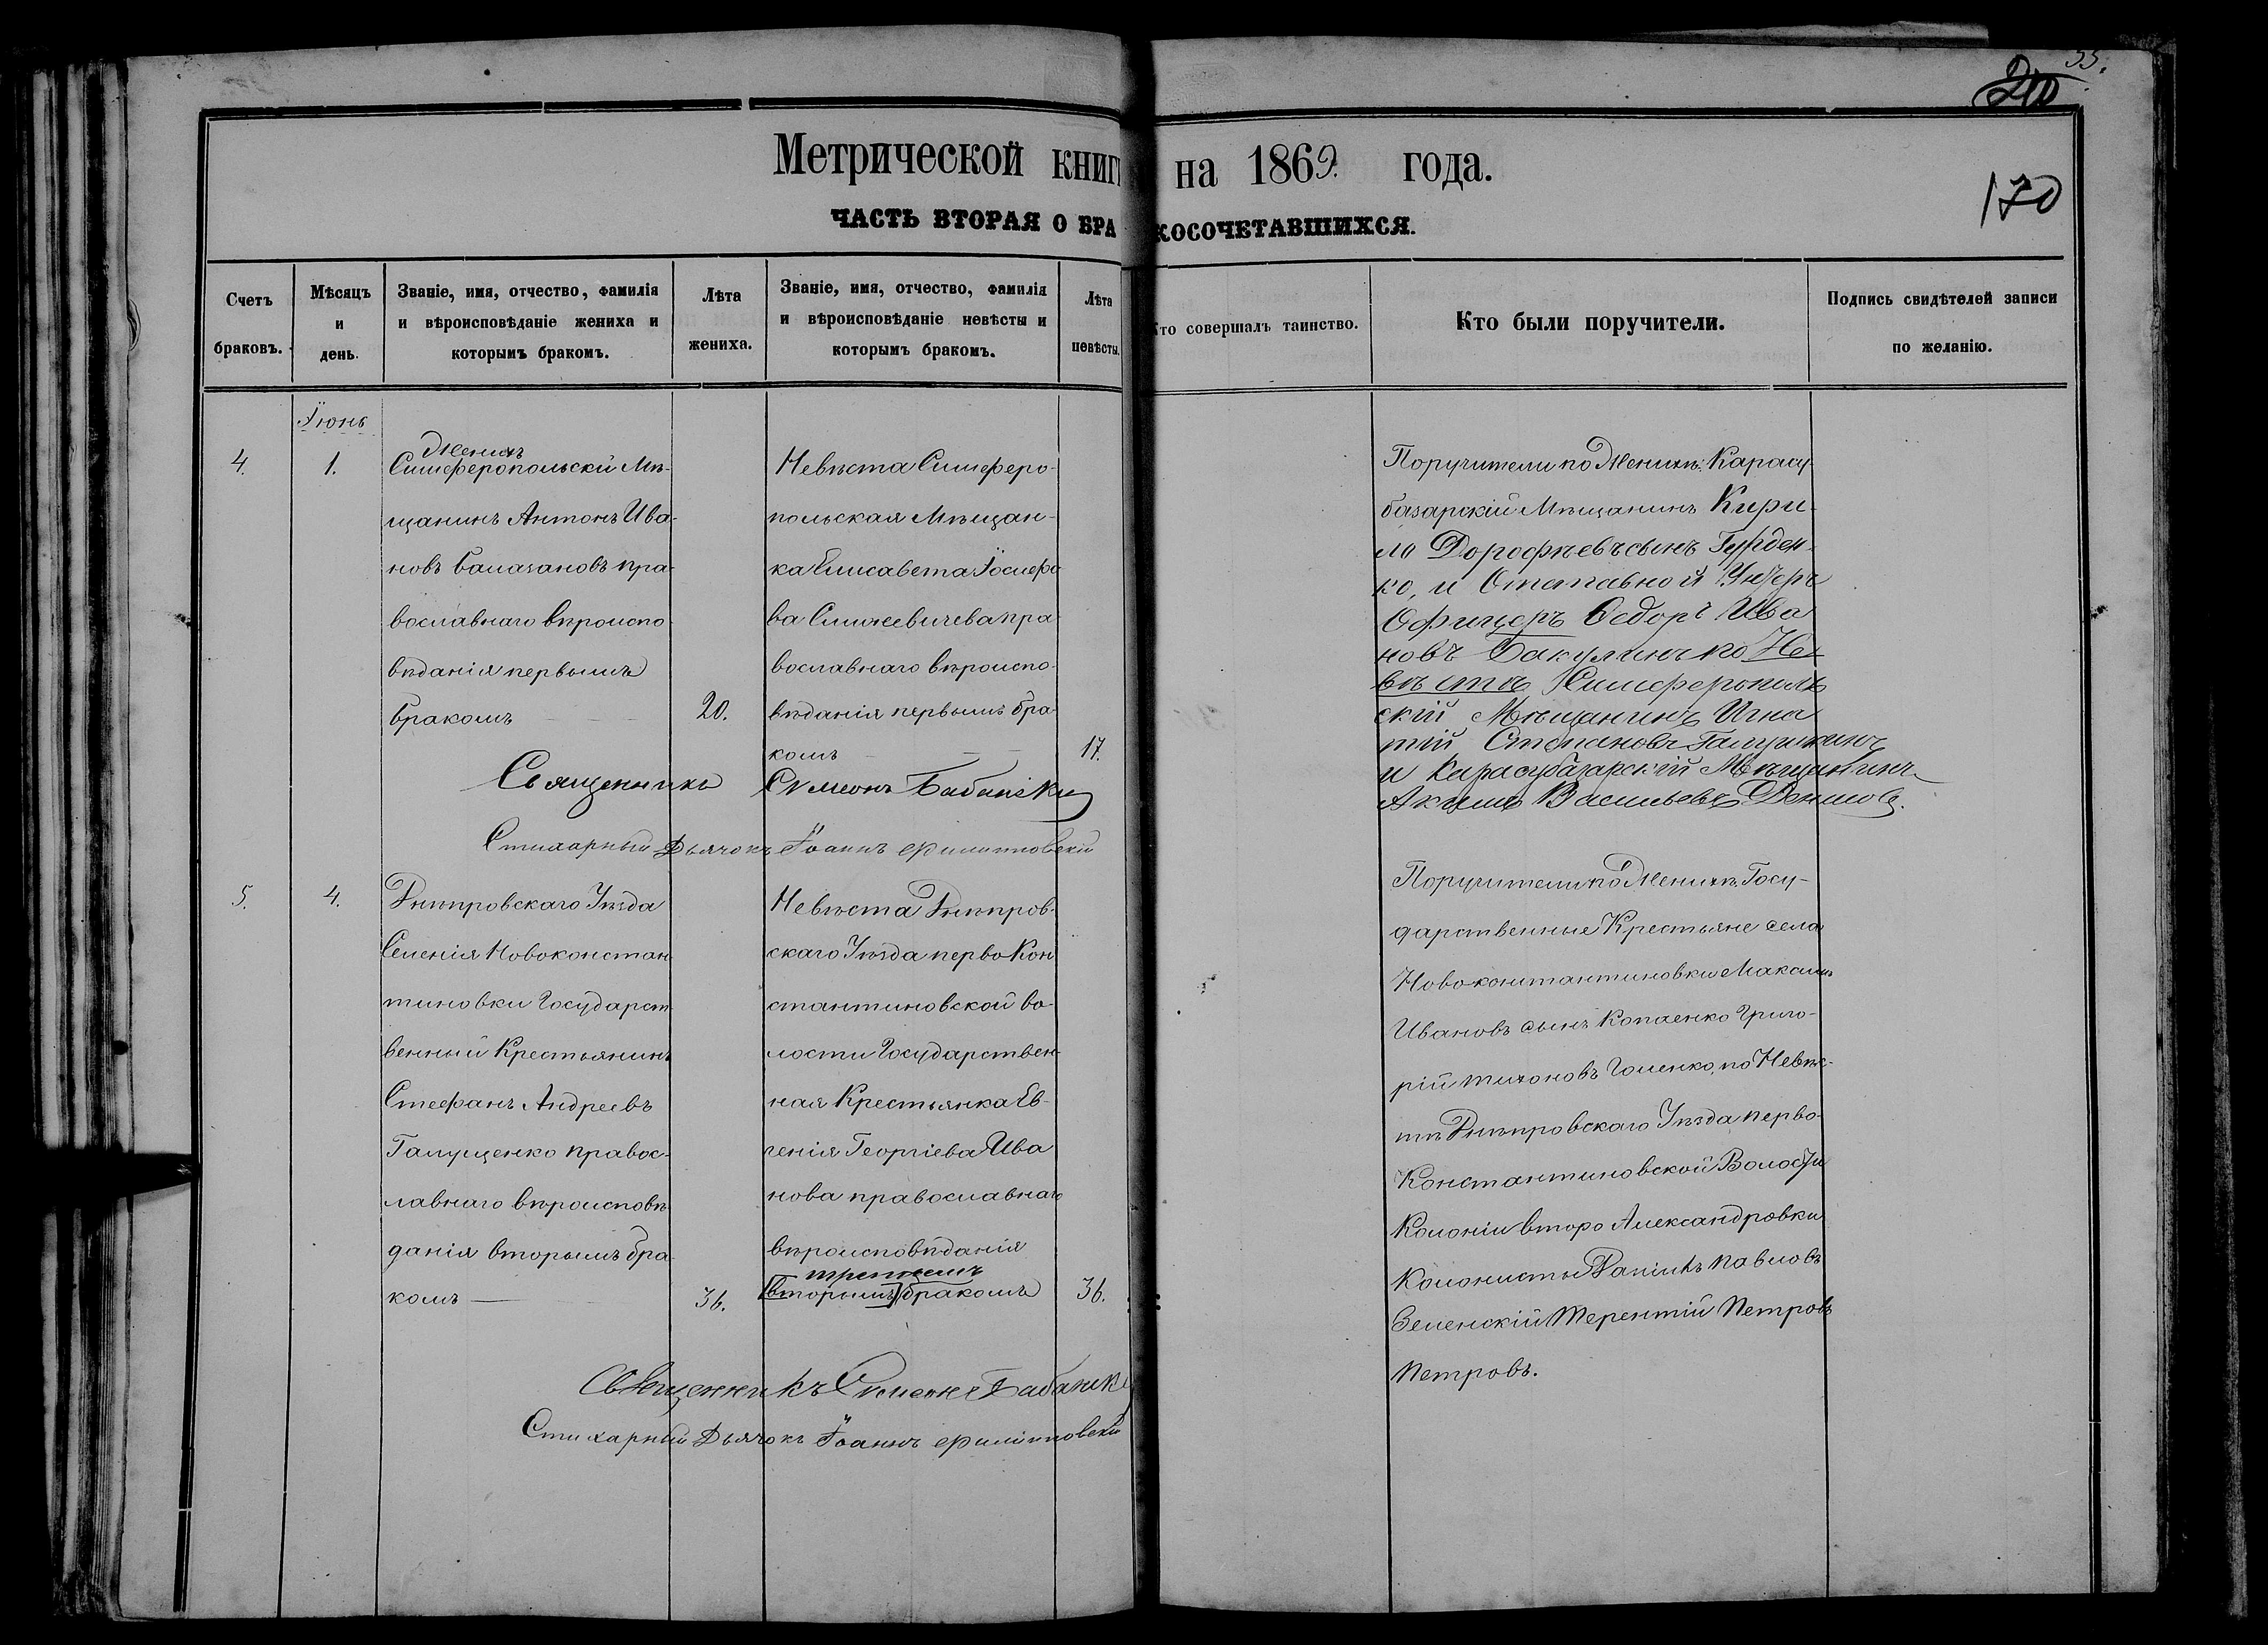 55.
210
170
Метрической книги на 1869. года.
ЧАСТЬ ВТОРАЯ О БРАКОСОЧЕТАВШИХСЯ.
Счетъ браковъ.
Мѣсяцъ и день.
Званіе, имя, отчество, фамилія
и вѣроисповѣданіе жениха и
которымъ бракомъ.
Лѣта
жениха.
Званіе, имя, отчество, фамилія
и вѣроисповѣданіе невѣсты и
которымъ бракомъ.
Лѣта
невѣсты.
Кто совершалъ таинство.
Кто были поручители.
Подпись свидѣтелей записи
по желанію.
Їюнь
4.
1.
Женихъ
Симферопольскій Мѣ-
щанинъ Антонъ Ива-
новъ Балазановъ пра-
вославнаго вѣроиспо-
вѣданія первымъ
бракомъ
20.
Невѣста Симферо-
польская Мѣщан-
ка Елисавета Їосифо
ва Слижевичева пра-
вославнаго вѣроиспо-
вѣданія первымъ бра-
комъ
17.
Поручители по Женихѣ: Карасу-
базарскій Мѣщанинъ Кири-
ло Дорофѣевъ сынъ Гурден-
ко, и Отставной Унтеръ
Офицеръ Ѳедоръ Ива
новъ Бакулинъ по Не
вѣстѣ Симферополь
скій Мѣщанинъ Игна
тій Степановъ Галушкинъ
и Карасубазарскій Мѣщанинъ
Акимъ Васильевъ Денисов.
Священникъ Симеонъ Бабанскій
Стихарный Дьячокъ Їоаннъ Филипповскій
5.
4.
Днѣпровскаго Уѣзда
Селенія Новоконстан
тиновки Государст
венный Крестьянинъ
Стефанъ Андреевъ
Галущенко правос-
лавнаго вѣроисповѣ
данія вторымъ бра-
комъ
36.
Невѣста Днѣпров-
скаго Уѣзда перво Кон
стантиновской во-
лости Государствен-
ная Крестьянка Ев-
генія Георгіева Ива
нова православнаго
вѣроисповѣданія
третьемъ
[вторымъ] бракомъ
36.
Поручители по Женихѣ Госу-
дарственные Крестьяне села
Новоконстантиновки Максимъ
Ивановъ сынъ Копаенко Григо-
рій Тихоновъ Гоменко, по Невѣс-
тѣ Днѣпровскаго Уѣзда перво
Константиновской Волости
Колоніи второ Александровки
Колонисты Даніилъ Павловъ
Зеленскій Терентій Петровъ
Петровъ.
Священникъ Симеонъ Бабанск
Стихарный Дьячокъ Їоаннъ Филипповскій